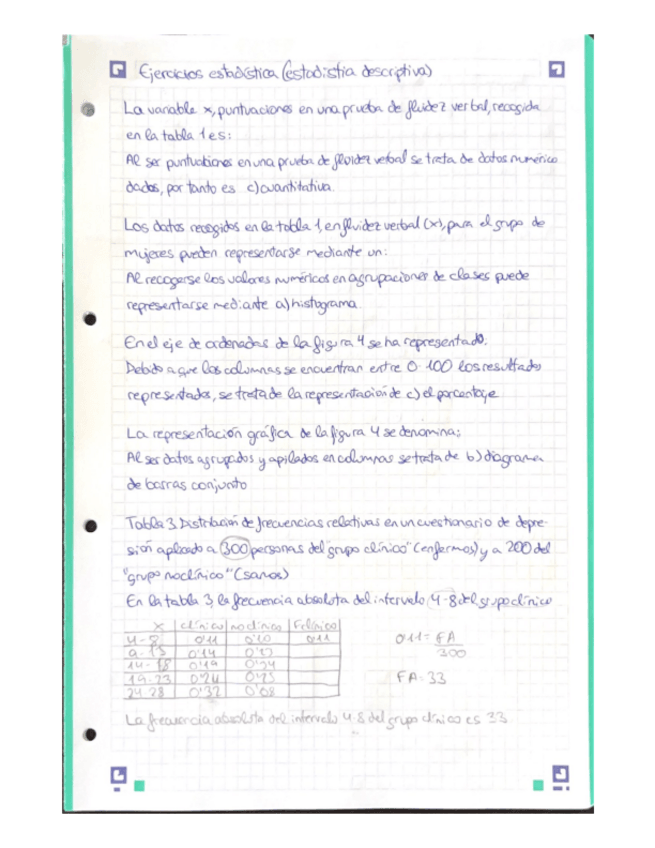 Ejercicios estadística (estadistia descriptiva)
La variable x, puntuaciones en una prueba de fluidez verbal, recogida
en la tabla 1 es:
Al ser puntuationes en una prueba de fluidez verbal se trata de datos numérico
dados, por tanto es c) cuantitativa.
Los datos recogidos en la tabla 1, en fluidez verbal (x), para el grupo de
mujeres pueden representarse mediante un:
Al recogerse los valores numéricos en agrupaciones de clases puede
representarse mediante a) histograma.
En el eje de ordenadas de la figura 4 se ha representado.
Debido a que las columnas se encuentran entre 0-100 los resultados
representados, se trata de la representación de c) el porcentaje
La representación gráfica de la figura 4 se denomina:
Al ser datos agrupados y apilados en columnas se trata de b) diagrama
de barras conjunto
Tabla 3. Distribución de frecuencias relativas en un cuestionario de depre-
sión aplicado a 300 personas del "grupo clínico" (enfermos) y a 200 del
"grupo noclínico" (sanos)
En la tabla 3, la frecuencia absoluta del intervalo 4-8 del grupo clínico
X clínico no clínico F clínico
4-8 0'11 0'20 0'11
9-13 0'14
14-18 0'19 0'24
19-23 0'24 0'23
24-28 0'32 0'08
0'11 = FA
300
FA = 33
La frecuencia absoluta del intervalo 4-8 del grupo clínico es 33